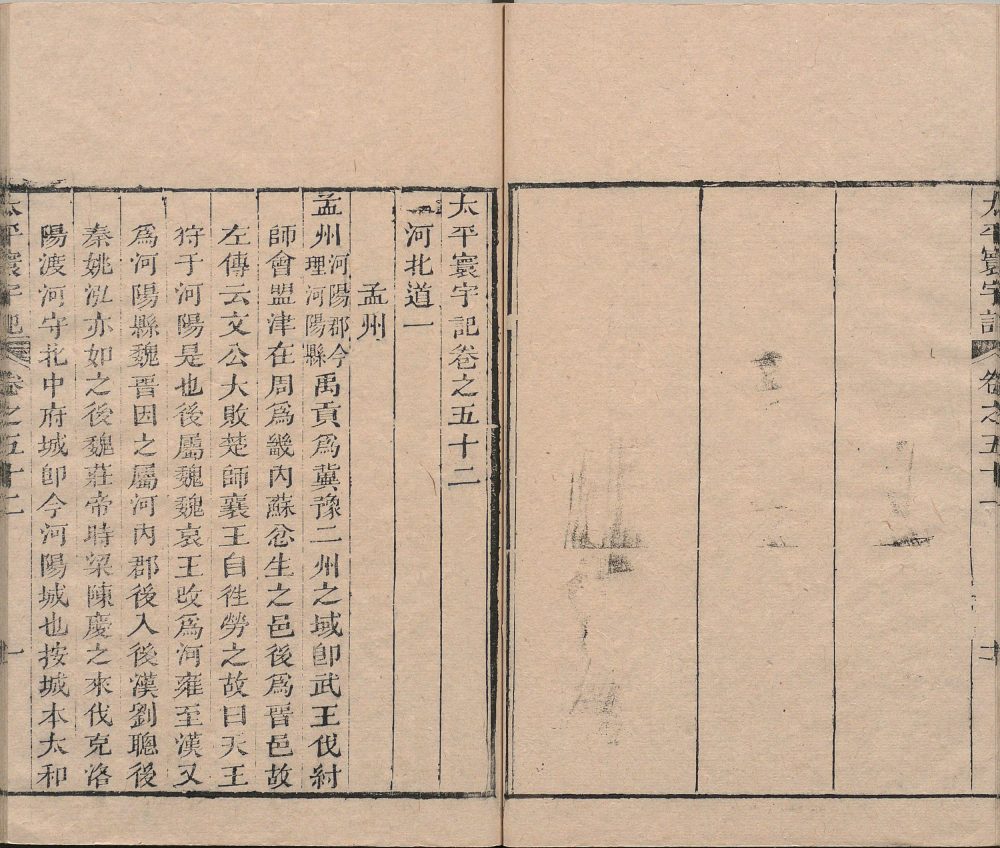 太平寰宇記
卷之五十一
太平寰宇記卷之五十二
河北道一
孟州
孟州河陽郡今理河陽縣禹貢爲冀豫二州之域卽武王伐紂
師會盟津在周爲畿內蘇忿生之邑後爲晉邑故
左傳云文公大敗楚師襄王自徃勞之故曰天王
狩于河陽是也後屬魏魏哀王改爲河雍至漢又
爲河陽縣魏晉因之屬河內郡後入後漢劉聰後
秦姚泓亦如之後魏莊帝時梁陳慶之來伐克洛
陽渡河守北中府城卽今河陽城也按城本太和
太平寰宇記
卷之五十二
一